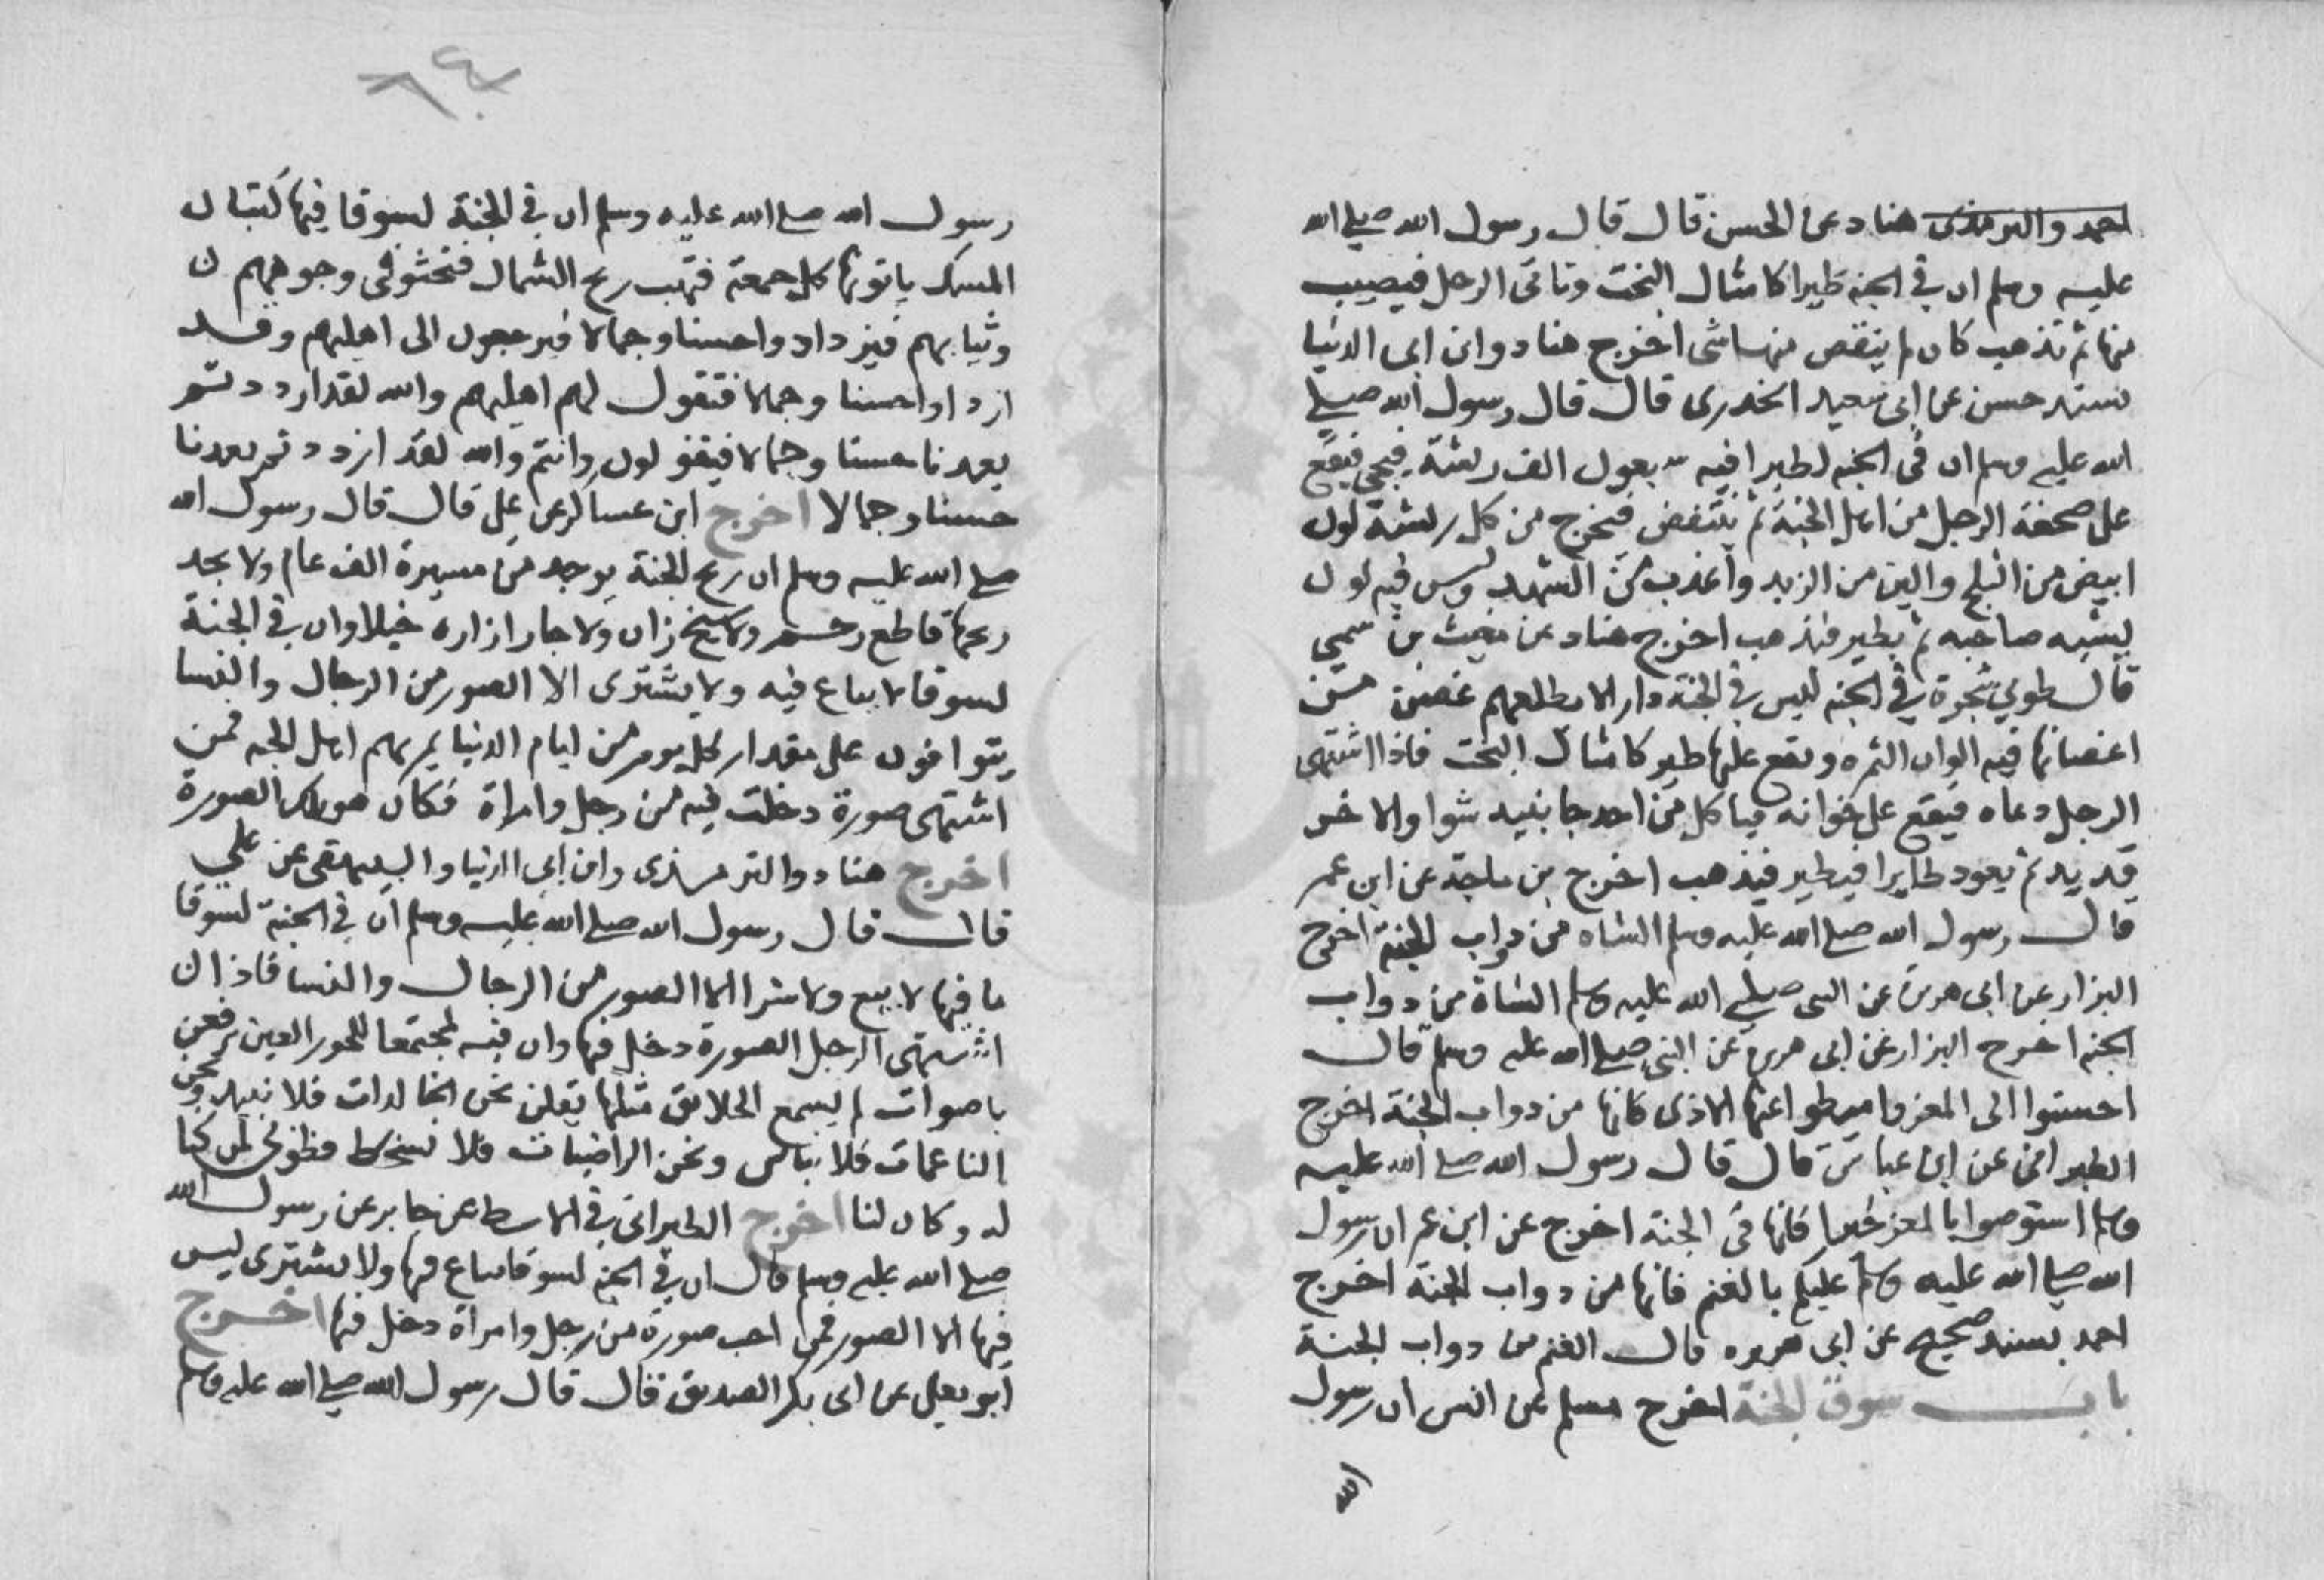 احمد والترمذى هناد عن الحسن قال قال رسول الله صلى الله
عليه وسلم ان في الجنة طيرا كامثال البخت وتاتى الرجل فيصيب
منها ثم تذهب كان لم ينقص منها شى اخرج هناد وابن ابى الدنيا
بسند حسن عن ابى سعيد الخدرى قال قال رسول الله صلى
الله عليه وسلم ان فى الجنه لطيرا فيه سبعون الف ريشة فيجى فيقع
على صحفة الرجل من اهل الجنة ثم ينتفض فيخرج من كل ريشة لون
ابيض من الثلج والين من الزبد واعذب من الشهد وليس فيه لون
يشبه صاحبه ثم يطير فيذهب اخرج هناد عن مغيث بن سمي
قال طوبي شجرة في الجنه ليس في الجنة دار الا يظلهم غصن من
اغصانها فيه الوان الثمره ويقع عليها طير كامثال البخت فاذا اشتهى
الرجل دعاه فيقع على خوانه فياكل من احد جانبيه شوا والاخر
قديد ثم يعود طايرا فيطير فيذهب اخرج بن ماجة عن ابن عمر
قال رسول الله صلى الله عليه وسلم الشاه من دواب الجنة اخرج
البزار عن ابى هريرة عن النبى صلى الله عليه وسلم الشاة من دواب
الجنه اخرج البزار عن ابى هريرة عن النبي صلى الله عليه وسلم قال
احسنوا الى المعز واميطوا عنها الاذى فانها من دواب الجنة اخرج
الطبرانى عن ابن عباس قال قال رسول الله صلى الله عليه
وسلم استوصوا بالمعز خيرا فانها فى الجنة اخرج عن ابن عمر ان رسول
الله صلى الله عليه وسلم عليكم بالغنم فانها من دواب الجنة اخرج
احمد بسند صحيح عن ابى هريره قال الغنم من دواب الجنة
باب سوق الجنة اخرج مسلم عن انس ان رسول
٦٤
رسول الله صلى الله عليه وسلم ان في الجنة لسوقا فيها كثبان
المسك ياتونها كل جمعة فتهب ريح الشمال فتحثو فى وجوههم
وثيابهم فيزدادوا حسنا وجمالا فيرجعون الى اهليهم وقد
ازدادوا حسنا وجمالا فتقول لهم اهليهم والله لقد ازددتم
بعدنا حسنا وجمالا فيقولون وانتم والله لقد ازددتم بعدنا
حسنا وجمالا اخرج ابن عساكر عن علي قال قال رسول الله
صلى الله عليه وسلم ان ريح الجنة يوجد من مسيرة الف عام ولا يجد
ريحها قاطع رحم ولا شيخ زان ولا جار ازاره خيلا وان في الجنة
لسوقا لا يباع فيه ولا يشترى الا الصور من الرجال والنسا
يتوافون على مقدار كل يوم من ايام الدنيا يمر بهم اهل الجنه فمن
اشتهى صورة دخلت فيه من رجل وامراة فكان هو تلك الصورة
اخرج هناد والترمذى وابن ابى الدنيا والبيهقى عن علي
قال قال رسول الله صلى الله عليه وسلم ان في الجنة لسوقا
ما فيها لا بيع ولا شرا الا الصور من الرجال والنسا فاذا ان
اشتهى الرجل الصورة دخل فيها وان فيه لمجتمعا للحور العين يرفعن
باصوات لم يسمع الخلايق مثلها يقلن نحن الخالدات فلا نبيد ونحن
الناعمات فلا نباس ونحن الراضيات فلا نسخط فطوبى لمن كنا
له وكان لنا اخرج الطبرانى في الاوسط عن جابر عن رسول الله
صلى الله عليه وسلم قال ان في الجنه لسوقا يباع فيها ولا يشترى ليس
فيها الا الصور فمن احب صورة من رجل وامراة دخل فيها اخرج
ابو يعلى عن ابى بكر الصديق فقال قال رسول الله صلى الله عليه وسلم